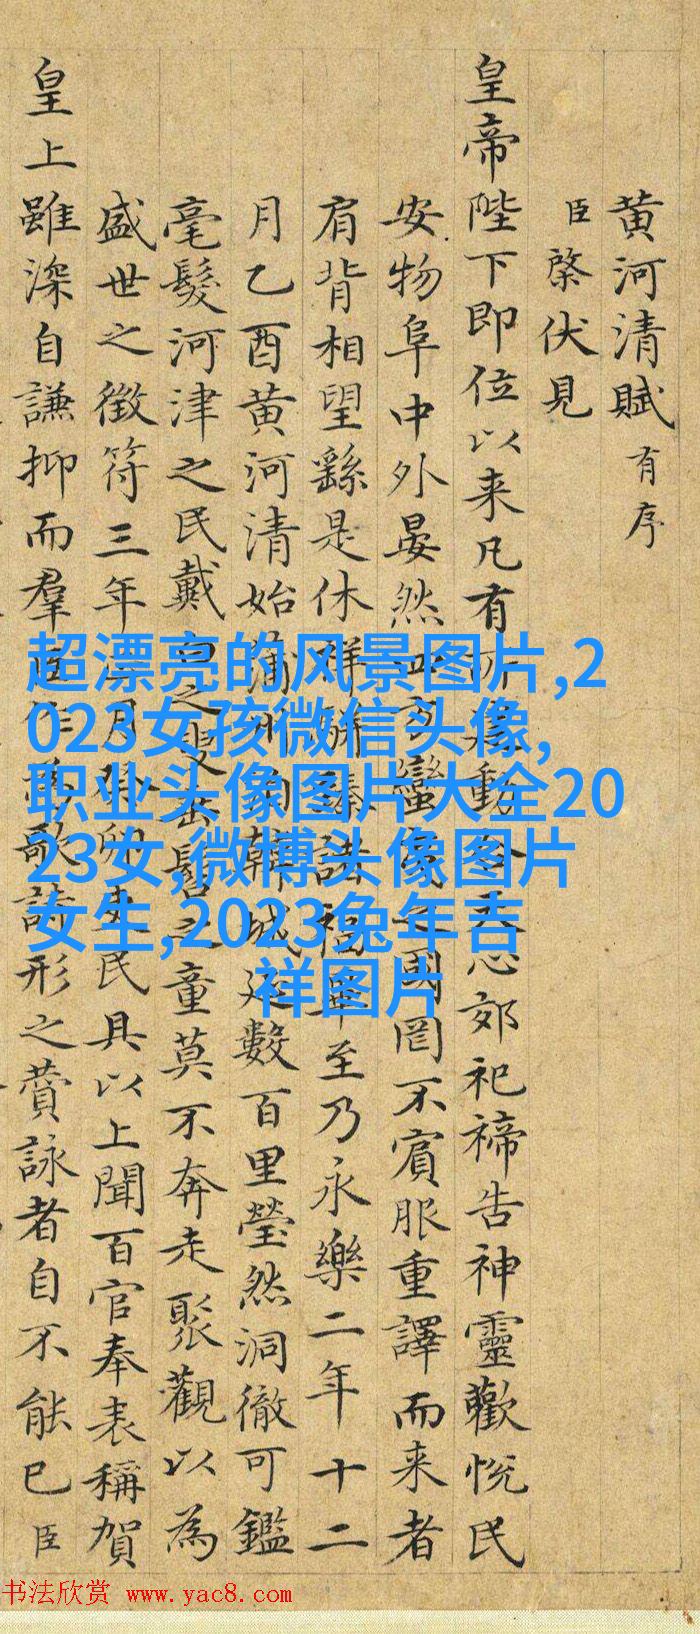 黄河清賦有序
臣棨伏見
皇帝陛下即位以来凡有所動天心郊祀禘告神靈歡悦民
安物阜中外晏然四方蠻之國罔不賓服重譯而来者
肩背相望繇是休祥駢臻諸福畢至乃永樂二年十二
月乙酉黄河清始蒲州韓城延數百里瑩然洞徹可鑑
毫髮河津之民戴白之叟垂髫之童莫不奔走聚觀以為
盛世之徴符三年月癸卯吏民具以上聞百官奉表稱賀
皇上雖深自謙抑而羣臣作為歌詩形之賛詠者自不能已臣
超漂亮的风景图片,2
023女孩微信头像,
职业头像图片大全20
23女,微博头像图片
女生,2023兔年吉
祥图片
书法欣赏 www.yac8.com